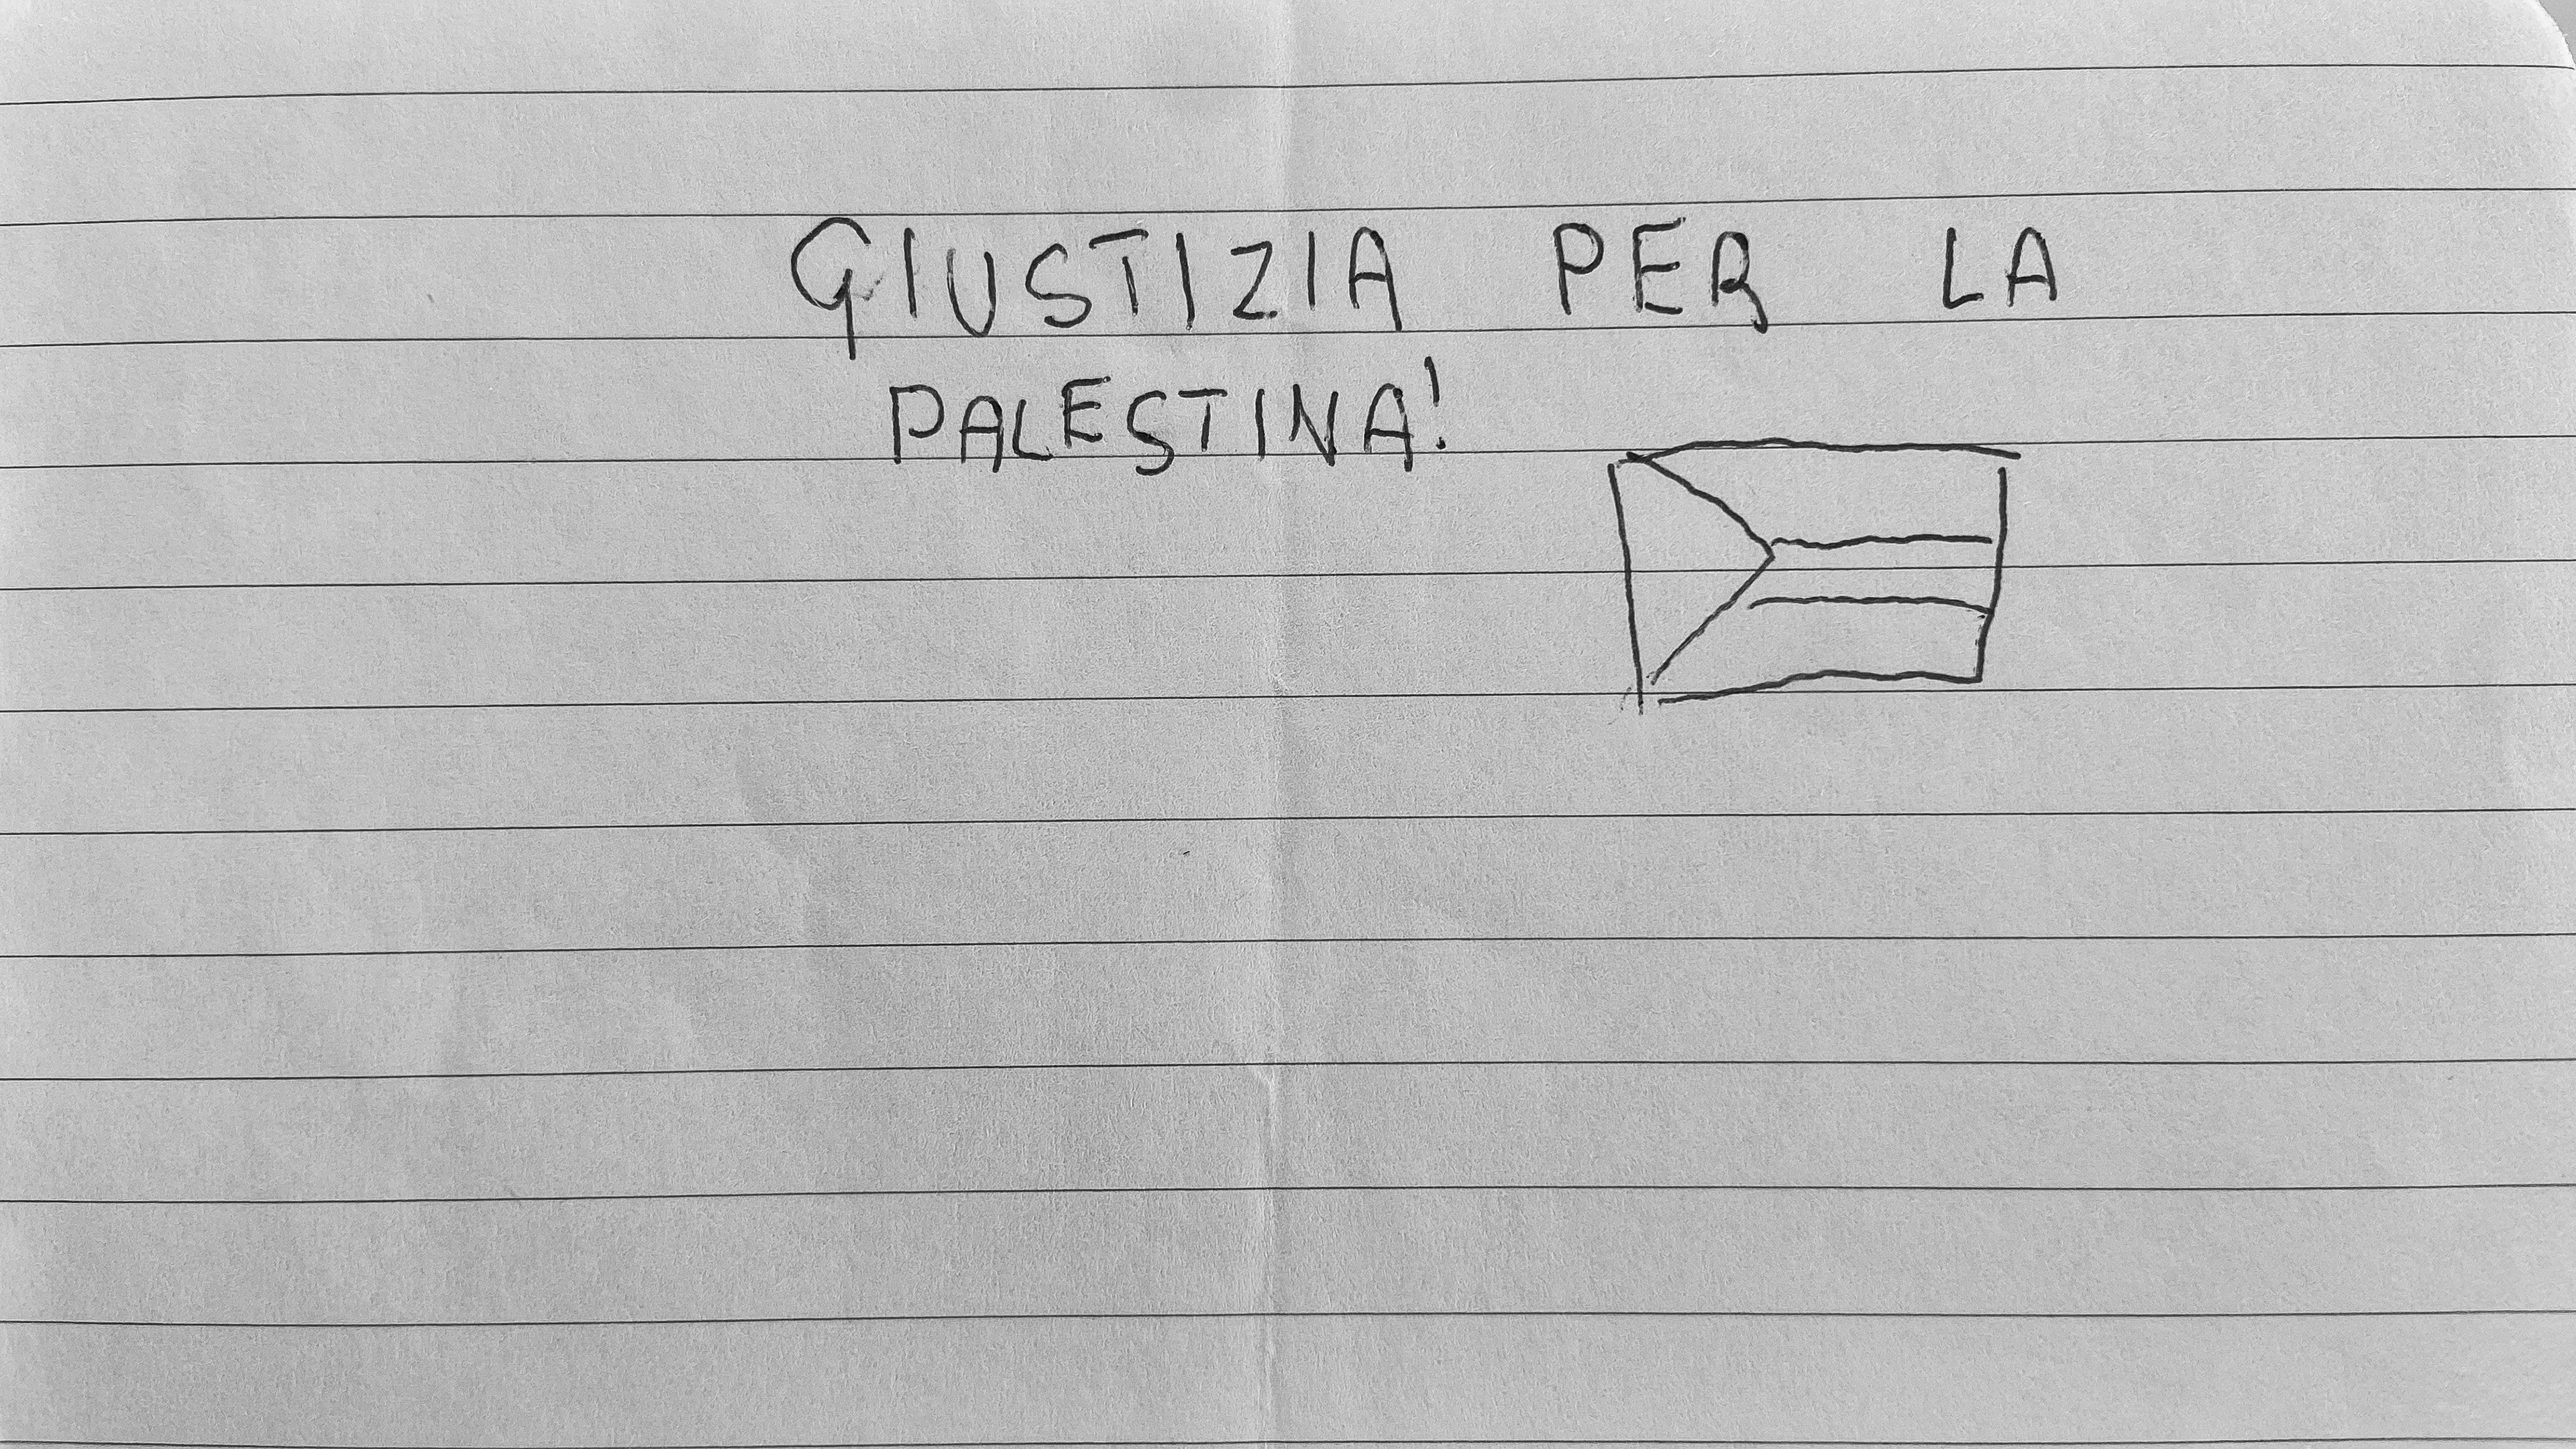 GIUSTIZIA PER LA
PALESTINA!